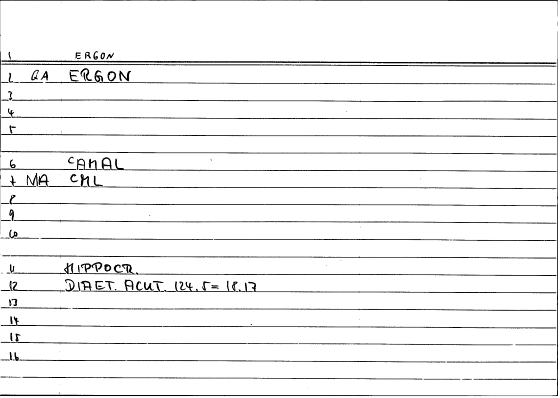 1 ERGON
2 GA ERGON
3
4
5
6 CAMAL
7 MA CML
8
9
10
11 HIPPOCR.
12 DIAET. ACUT. 124.5 = 18.17
13
14
15
16